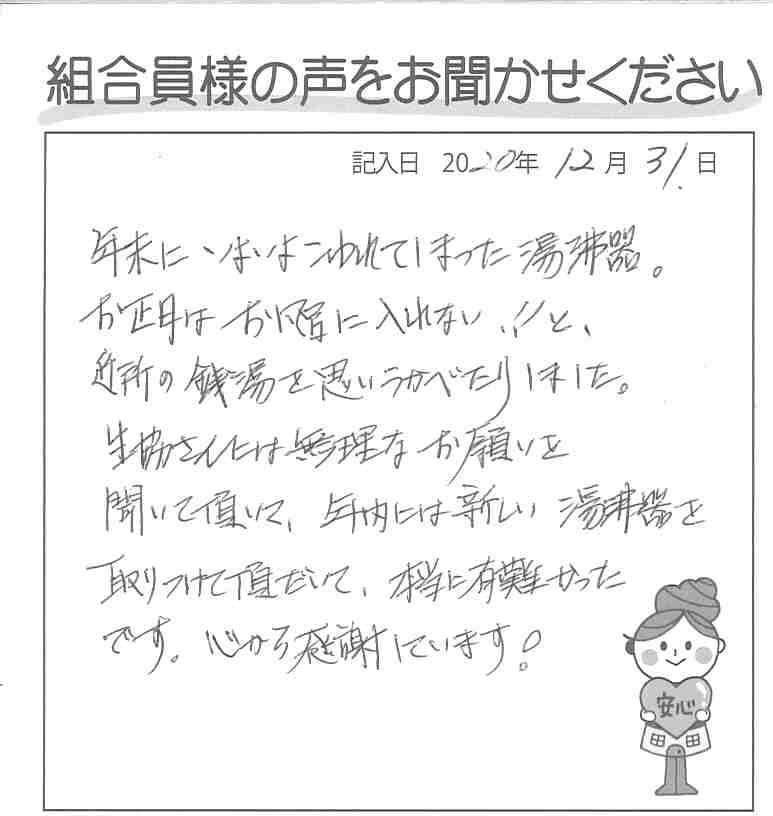 組合員様の声をお聞かせください
記入日 2020年 12月 31日
年末にいよいよこわれてしまった湯沸器。
お正月はお風呂に入れない!!と、
近所の銭湯を思いうかべたりしました。
生協さんには無理なお願いを
聞いて頂いて、年内には新しい湯沸器を
取りつけて頂だいて、本当に有難かった
です。心から感謝しています!
安心